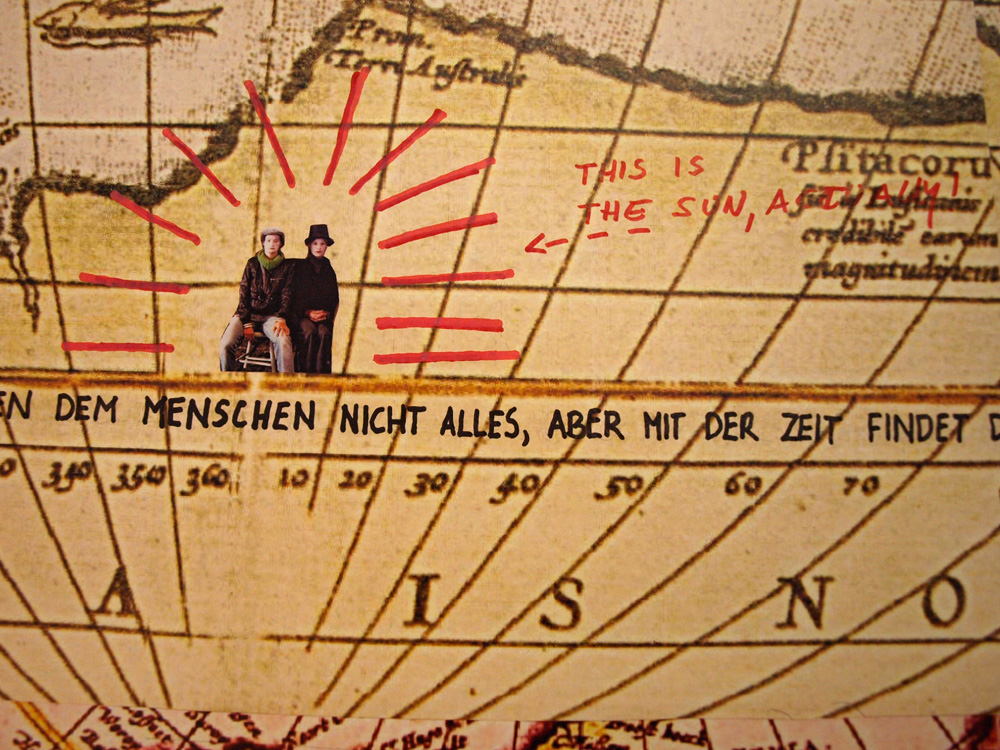 Prom.
Terre Australis
THIS IS
THE SUN, ACTUALLY!
Psitacoru
magnitudinem
EN DEM MENSCHEN NICHT ALLES, ABER MIT DER ZEIT FINDET D
0 340 350 360 10 20 30 40 50 60 70
A I S N O